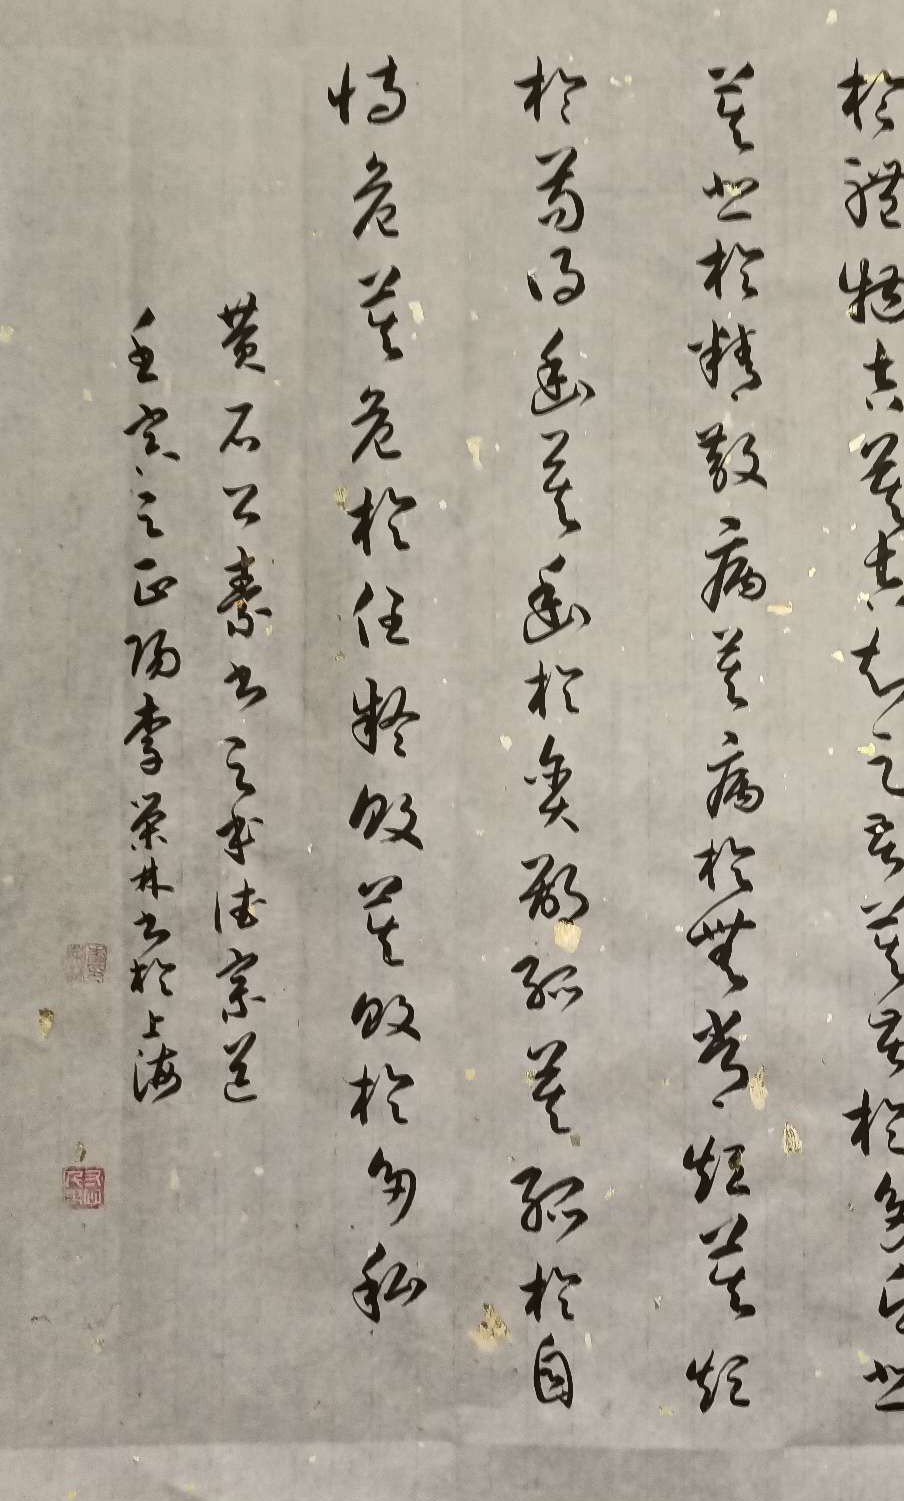 於體物吉莫吉知足苦莫苦於多願悲
莫悲於精散病莫病於無常短莫短
於苟得幽莫幽於貪鄙孤莫孤於自
恃危莫危於任疑敗莫敗於多私
黄石公素書之本德宗道
壬寅之正陽李榮林書於上海